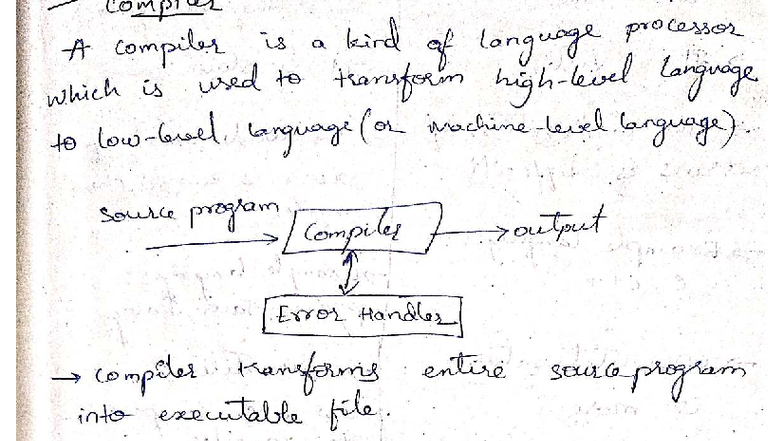 Compiler
A compiler is a kind of language processor
which is used to transform high-level language
to low-level language (or machine-level language).
source program
Compiler
output
Error Handler
→ compiler transforms entire source program
into executable file.